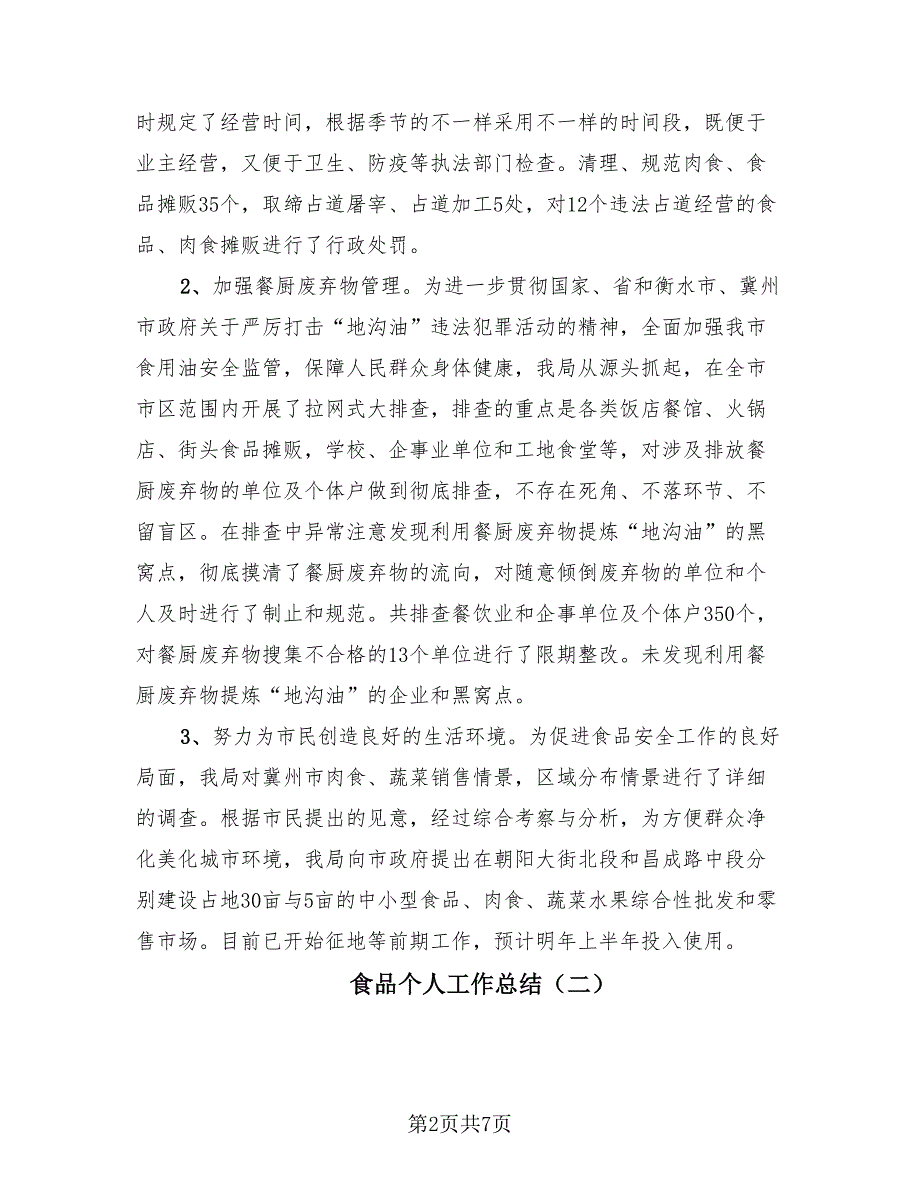 时规定了经营时间，根据季节的不一样采用不一样的时间段，既便于
业主经营，又便于卫生、防疫等执法部门检查。清理、规范肉食、食
品摊贩35个，取缔占道屠宰、占道加工5处，对12个违法占道经营的食
品、肉食摊贩进行了行政处罚。
2、加强餐厨废弃物管理。为进一步贯彻国家、省和衡水市、冀州
市政府关于严厉打击“地沟油”违法犯罪活动的精神，全面加强我市
食用油安全监管，保障人民群众身体健康，我局从源头抓起，在全市
市区范围内开展了拉网式大排查，排查的重点是各类饭店餐馆、火锅
店、街头食品摊贩，学校、企事业单位和工地食堂等，对涉及排放餐
厨废弃物的单位及个体户做到彻底排查，不存在死角、不落环节、不
留盲区。在排查中异常注意发现利用餐厨废弃物提炼“地沟油”的黑
窝点，彻底摸清了餐厨废弃物的流向，对随意倾倒废弃物的单位和个
人及时进行了制止和规范。共排查餐饮业和企事单位及个体户350个，
对餐厨废弃物搜集不合格的13个单位进行了限期整改。未发现利用餐
厨废弃物提炼“地沟油”的企业和黑窝点。
3、努力为市民创造良好的生活环境。为促进食品安全工作的良好
局面，我局对冀州市肉食、蔬菜销售情景，区域分布情景进行了详细
的调查。根据市民提出的见意，经过综合考察与分析，为方便群众净
化美化城市环境，我局向市政府提出在朝阳大街北段和昌成路中段分
别建设占地30亩与5亩的中小型食品、肉食、蔬菜水果综合性批发和零
售市场。目前已开始征地等前期工作，预计明年上半年投入使用。
食品个人工作总结（二）
第2页共7页